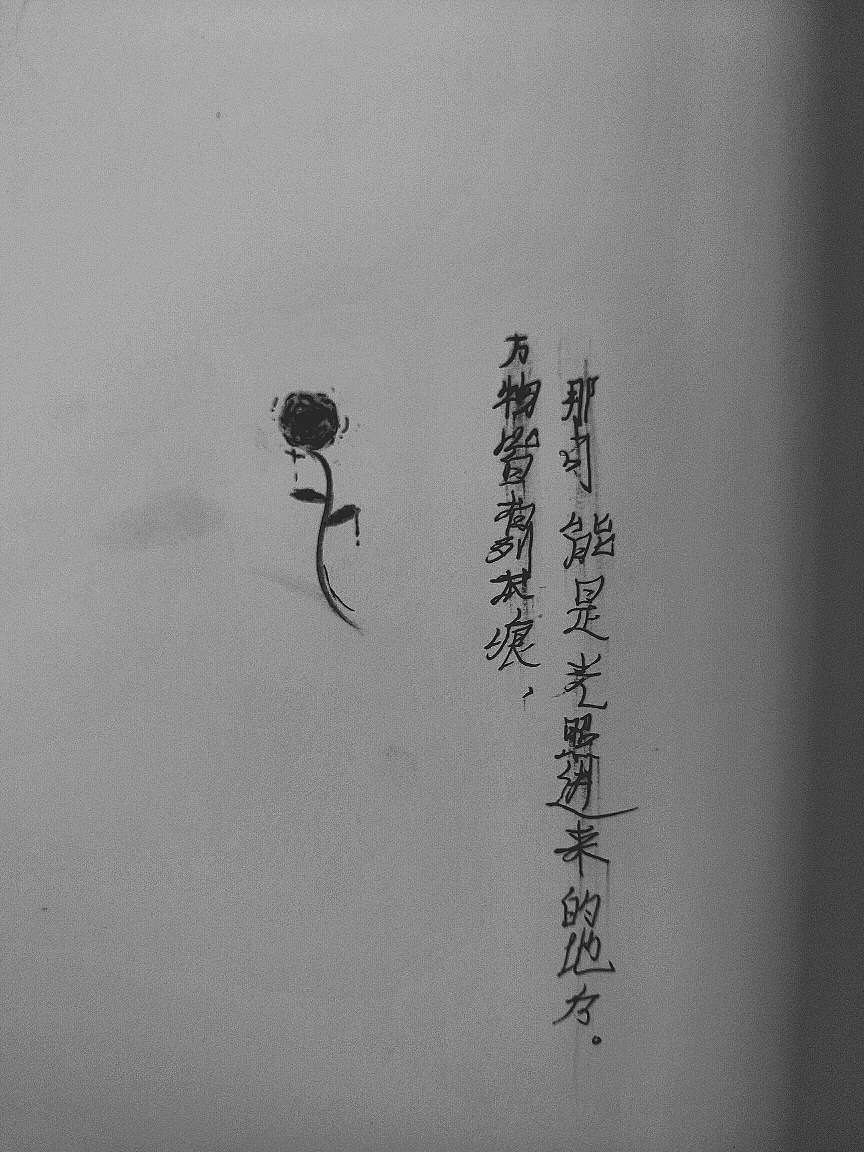 万物皆有裂痕，
那可能是光照进来的地方。